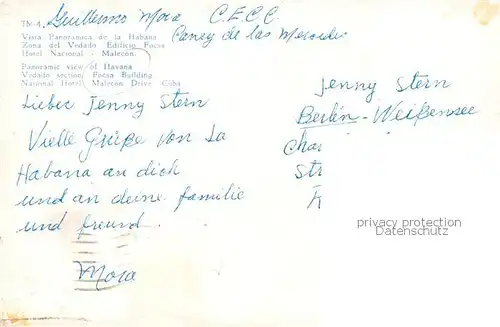 Guillermo Mora C.E.C.C.
TM-4.
Caney de las Mercedes
Vista Panoramica de la Habana
Zona del Vedado Edificio Focsa
Hotel Nacional - Malecon.
Panoramic view of Havana
Vedado section Focsa Building
National Hotel Malecon Drive Cuba
Lieber Jenny Stern
Vielle Grüße von La
Habana an dich
und an deine familie
und freund.
Mora
Jenny Stern
Berlin-Weißensee
Char
Str
privacy protection
Datenschutz